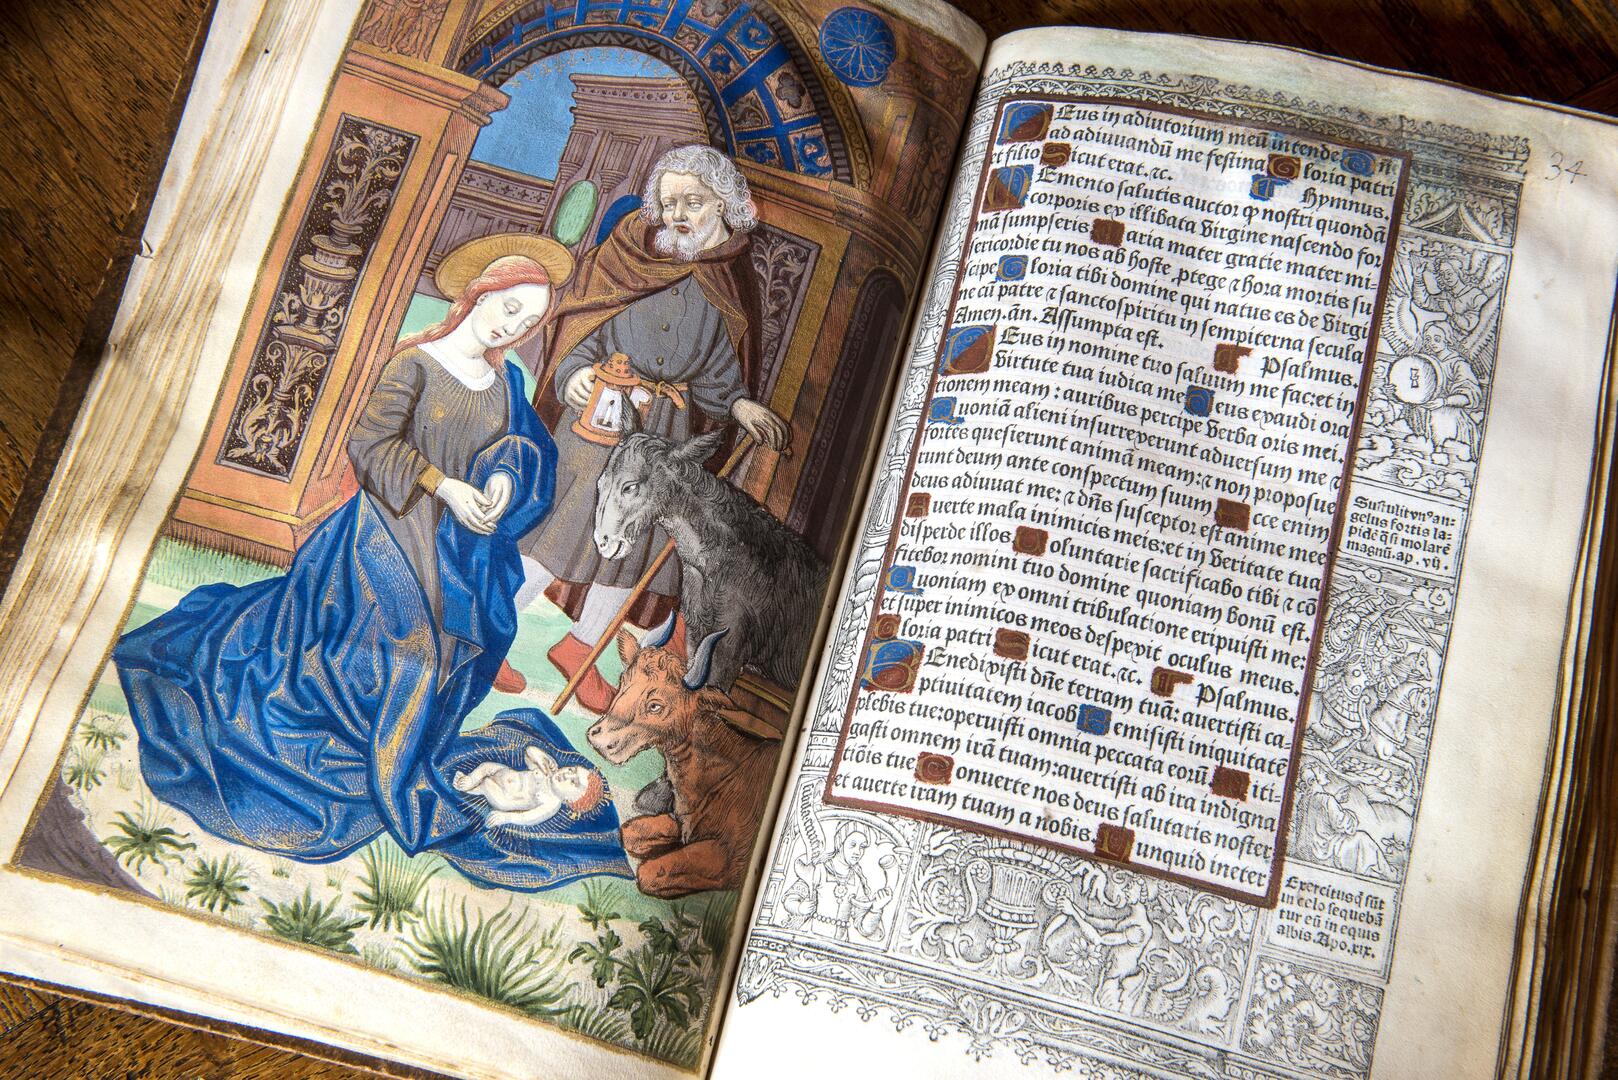 34
Deus in adiutorium meũ intende. Dñe
ad adiuuandũ me festina. Gloria patri
et filio Sicut erat. ⁊c. Hymnus.
Memento salutis auctor ꝙ nostri quondã
corporis ex illibata virgine nascendo for
mã sumpseris. Maria mater gratie mater mi-
sericordie tu nos ab hoste ꝓtege ⁊ hora mortis su
scipe. Gloria tibi domine qui natus es de virgi
ne cũ patre ⁊ sanctospiritu in sempiterna secula
Amen. añ. Assumpta est. Psalmus.
Deus in nomine tuo saluum me fac: et in
virtute tua iudica me Deus exaudi ora
tionem meam: auribus percipe verba oris mei.
Quoniã alieni insurrexerunt aduersum me ⁊
fortes quesierunt animã meam: ⁊ non proposue
runt deum ante conspectum suum. Ecce enim
deus adiuuat me: ⁊ dñs susceptor est anime mee
Auerte mala inimicis meis: et in veritate tua
disperde illos. Voluntarie sacrificabo tibi ⁊ cõ
fitebor nomini tuo domine quoniam bonũ est.
Quoniam ex omni tribulatione eripuisti me:
et super inimicos meos despexit oculus meus.
Gloria patri Sicut erat. ⁊c. Psalmus.
Benedixisti dñe terram tuã: auertisti ca-
ptiuitatem iacob Remisisti iniquitatẽ
plebis tue: operuisti omnia peccata eorũ. Miti-
gasti omnem irã tuam: auertisti ab ira indigna
tiõis tue Conuerte nos deus salutaris noster:
et auerte iram tuam a nobis. Nunquid ineter
Sustulit vnꝰ an-
gelus fortis la-
pidẽ q̃si molarẽ
magnũ. ap. vij.
Exercitusq̃ sũt
in celo sequebã
tur eũ in equis
albis. Apo. xix.